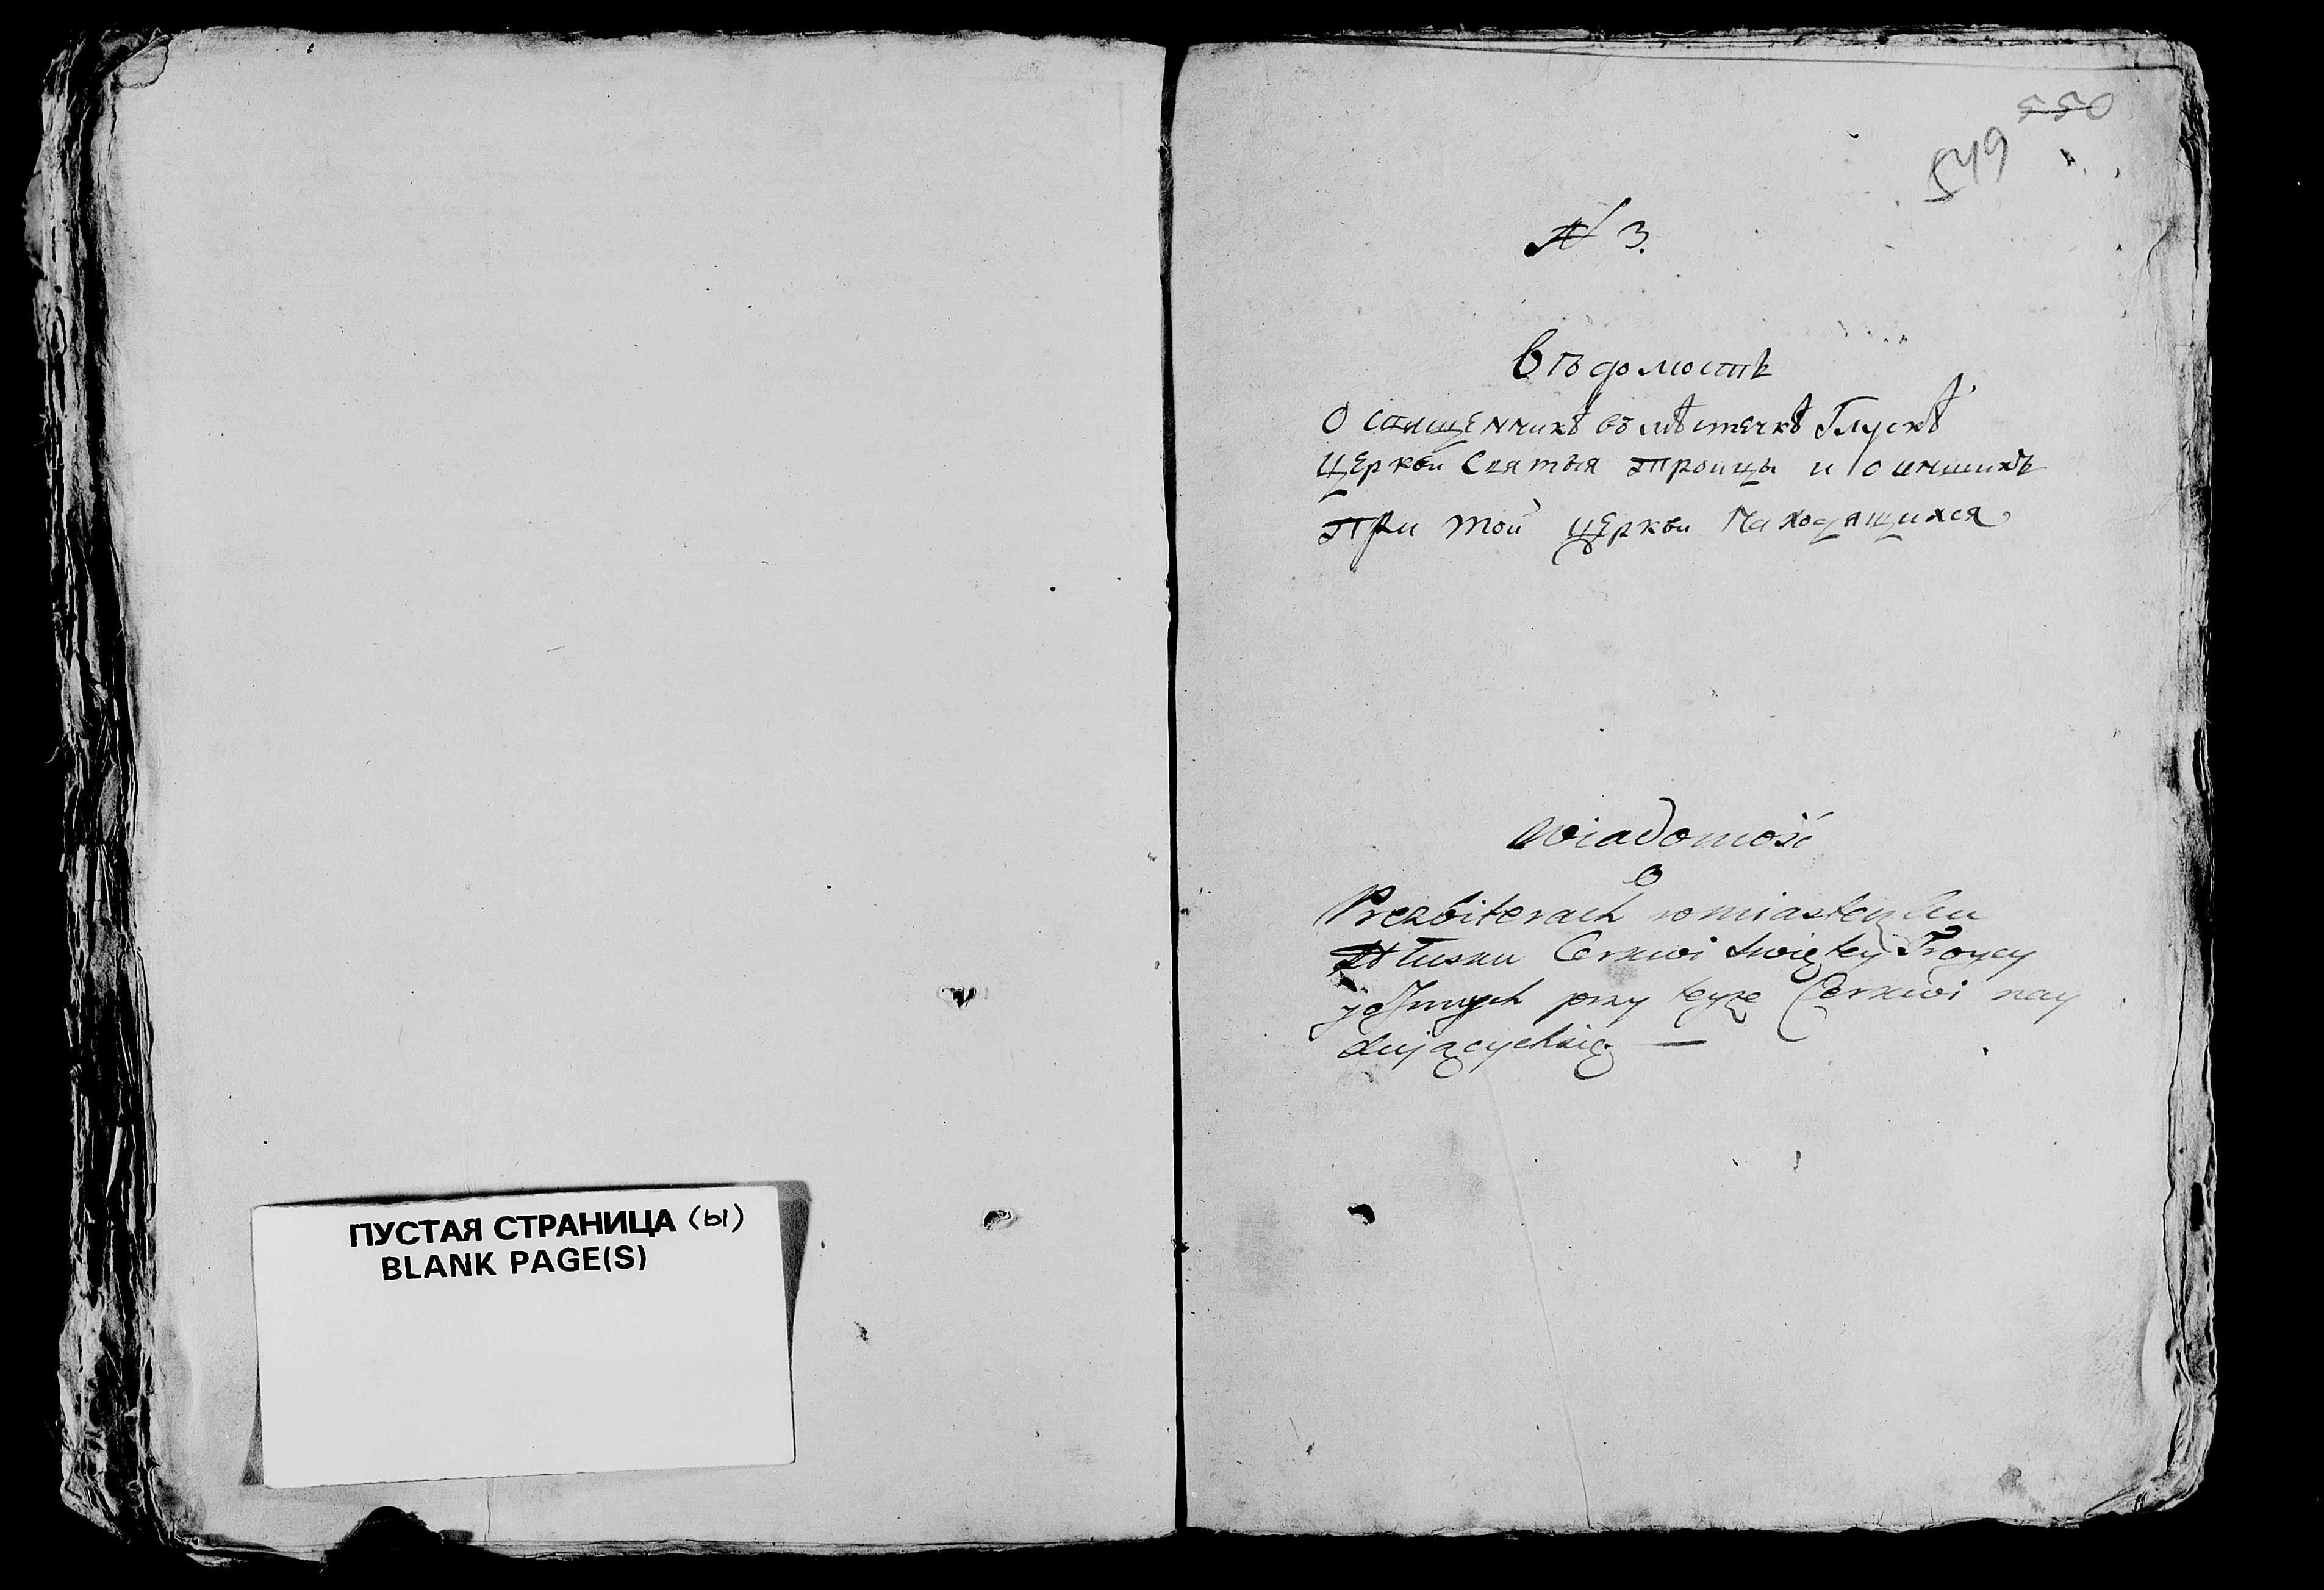 ПУСТАЯ СТРАНИЦА (ы)
BLANK PAGE(S)
550
549
N 3.
Вѣдомость
О священникѣ въ мѣстечкѣ Глускѣ
Церкви Святыя Троицы и о иншихъ
При той церкви Находящихся
Wiadomość
o
Prezbiterach w miasteczku
Hłusku Cerkwi Świętey Troycy
y o Jnnych przy teyże Cerkwi nay
duiących się —